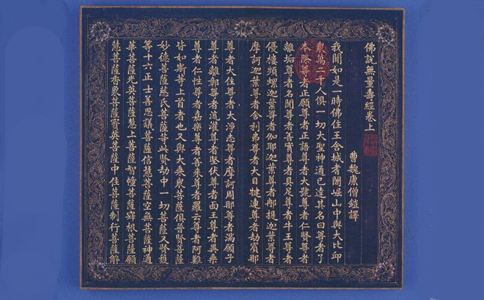 佛說無量壽經卷上
曹魏康僧鎧譯
我聞如是一時佛住王舍城耆闍崛山中與大比邱
衆萬二千人俱一切大聖神通已達其名曰尊者了
本際尊者正願尊者正語尊者大號尊者仁賢尊者
離垢尊者名聞尊者善實尊者具足尊者牛王尊者
優樓頻螺迦葉尊者伽耶迦葉尊者那提迦葉尊者
摩訶迦葉尊者舍利弗尊者大目揵連尊者劫賓那
尊者大住尊者大淨志尊者摩訶周那尊者滿願子
尊者離障尊者流灌尊者堅伏尊者面王尊者異乘
尊者仁性尊者嘉樂尊者善來尊者羅云尊者阿難
皆如斯等上首者也又與大乘衆菩薩俱普賢菩薩
妙德菩薩慈氏菩薩等此賢劫中一切菩薩又賢護
等十六正士善思議菩薩信慧菩薩空無菩薩神通
華菩薩光英菩薩慧上菩薩智幢菩薩寂根菩薩願
慧菩薩香象菩薩寶英菩薩中住菩薩制行菩薩解